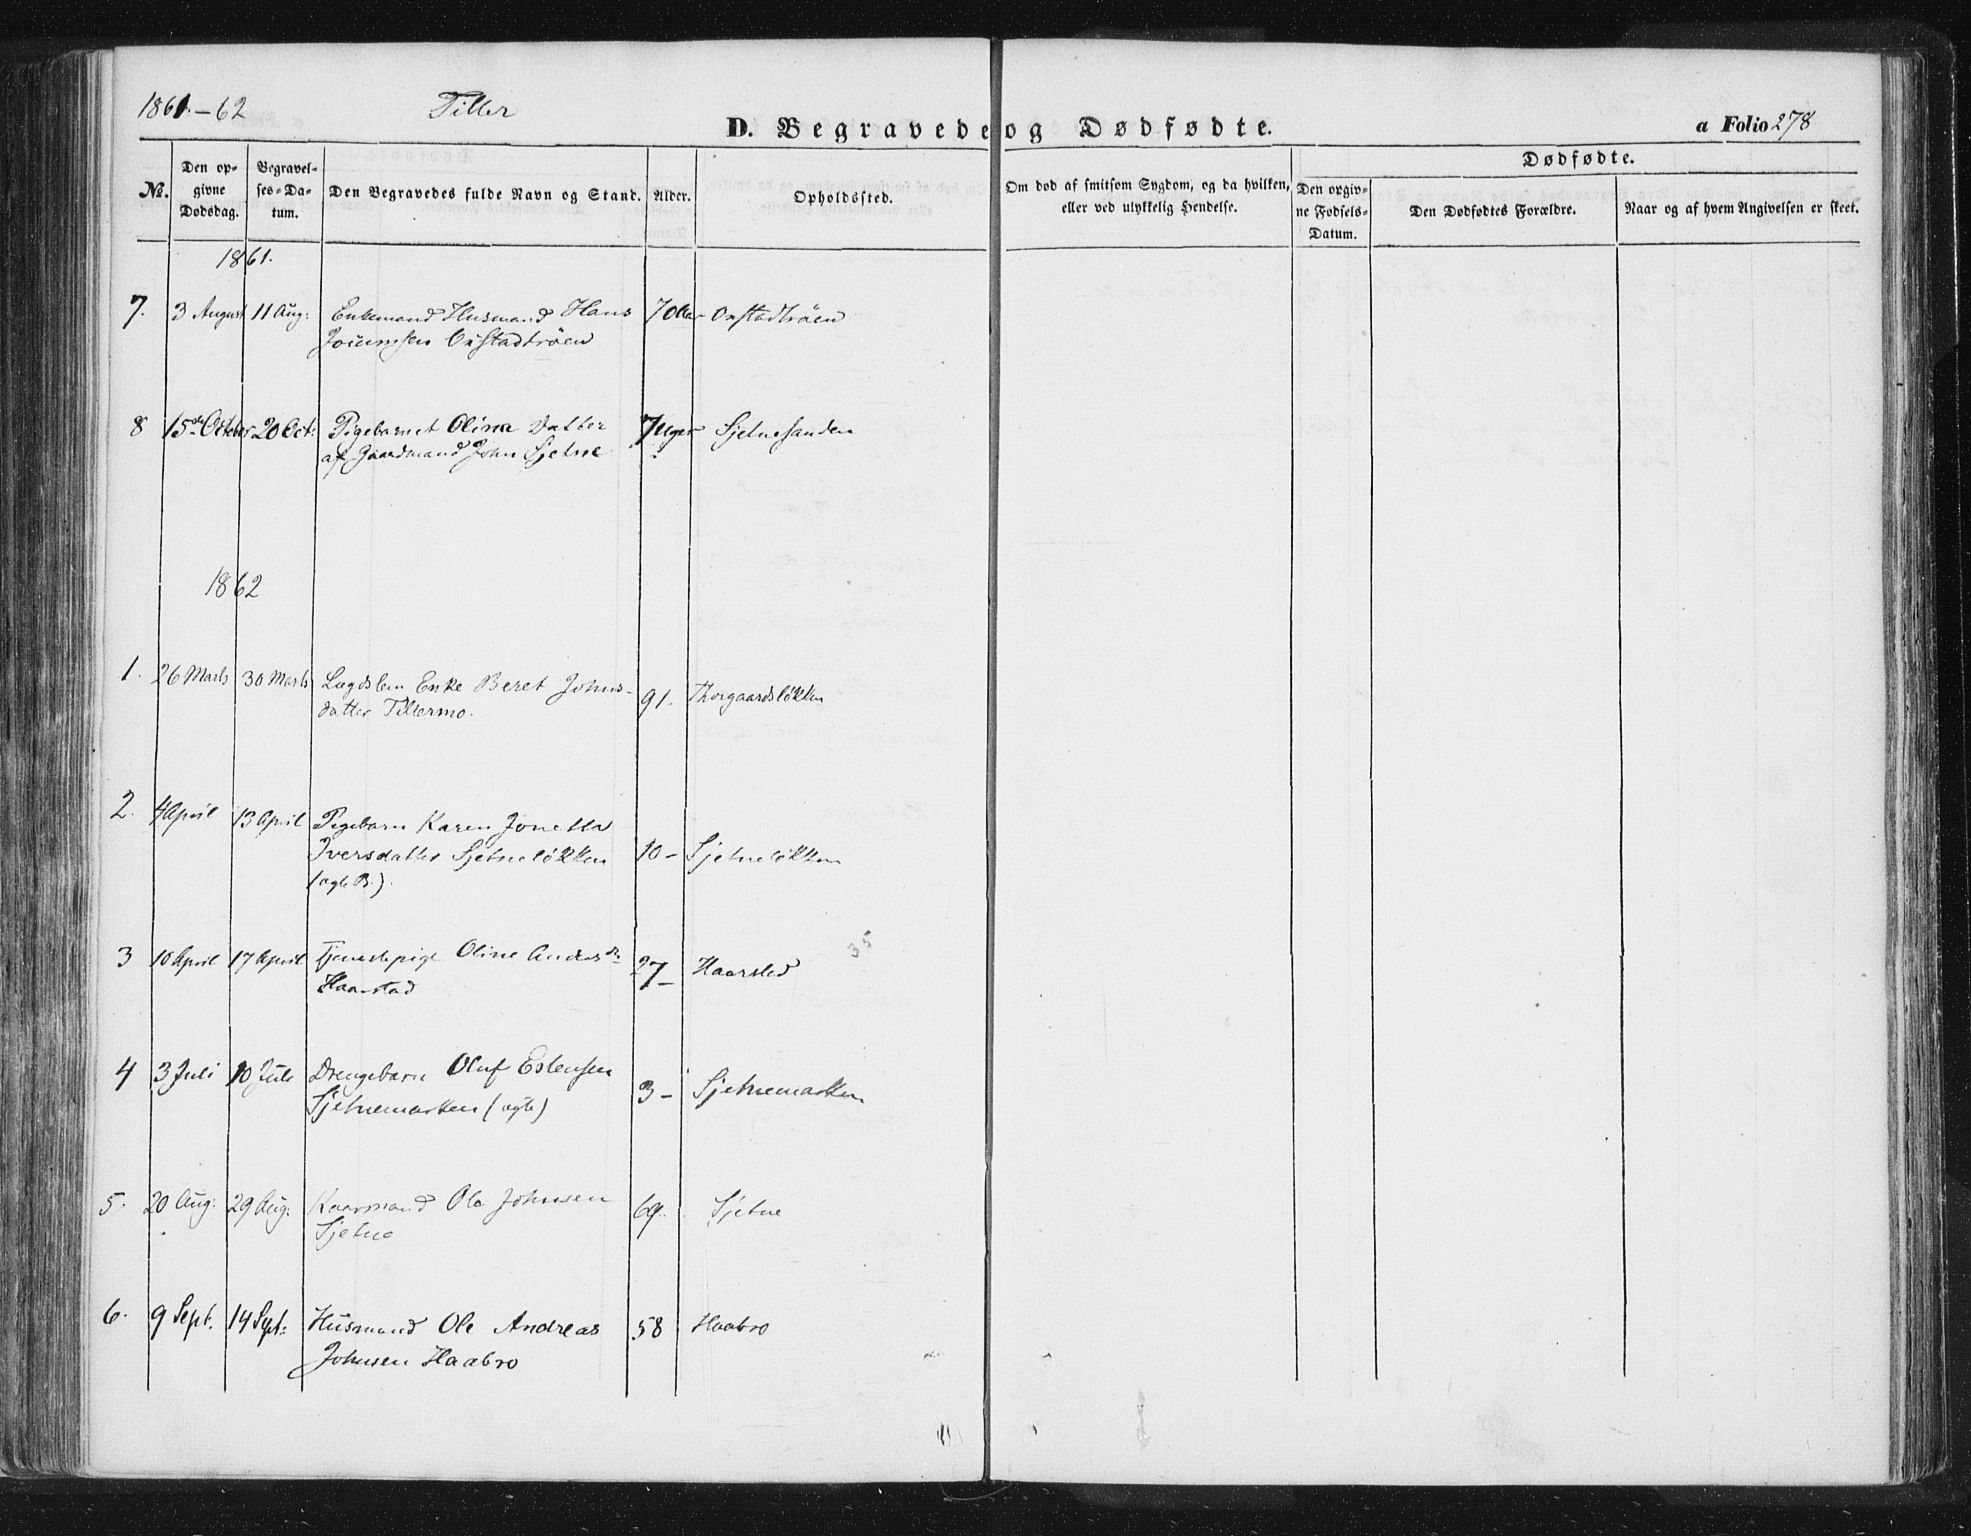 1861-62 Tiller
D. Begravede og Dødfødte. a Folio 278
No. Den opgivne Dødsdag. Begravelses-Datum. Den Begravedes fulde Navn og Stand. Alder. Opholdssted. Om død af smitsom Sygdom, og da hvilken, eller ved ulykkelig Hendelse.
Dødfødte.
Den opgivne Fødsels-Datum. Den Dødfødtes Forældre. Naar og af hvem Angivelsen er skeet.
1861.
7. 3 August 11 Aug: Enkemand Husmand Hans 70 Aar
8 15de October 20 Oct: Pigebarnet Olina Datter 7 Uger Sjetnesanden
af Gaardmand John Sjetne
1862
1. 26 Marts 30 Marts Lægdslem Enke Beret Johns-
datter Tillermo. 91. Thorgaardsløkken
2. 4 April 13 April Pigebarn Karen Jonetta
Iversdatter Sjetneløkken 10 - Sjetneløkken
(ægte B.).
3 10 April 17 April Tjenestepige Oline Anders dr 27 - Haarsted
Haarstad
35
4 3 Juli 10 Juli Drengebarn Oluf Estensen
Sjetnemarken (ægte) 3 - Sjetnemarken
5. 20 Aug: 29 Aug: Kaarmand Ole Johnsen 69. Sjetne
Sjetne
6. 9 Sept. 14 Sept: Husmand Ole Andreas 58 Haabro
Johnsen Haabro